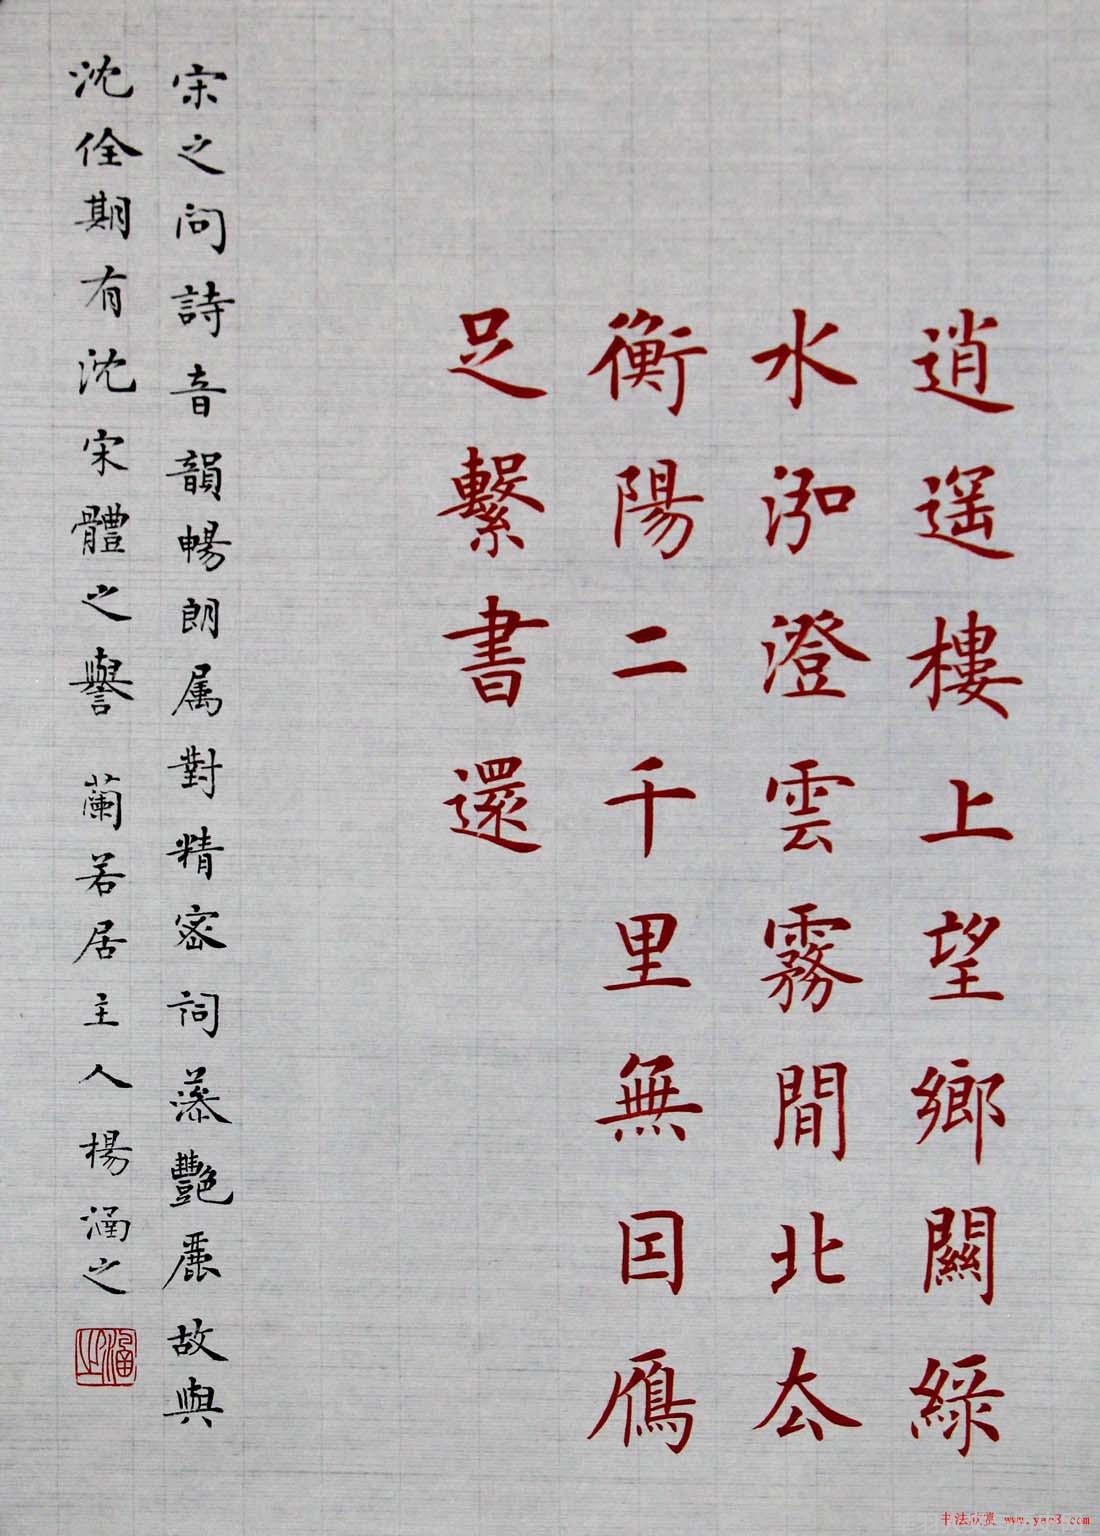 逍遥樓上望鄉關綠
水泓澄雲霧間北去
衡陽二千里無囙鴈
足繫書還
宋之問詩音韻暢朗属對精密詞藻艷麗故與
沈佺期有沈宋體之譽 蘭若居主人楊涵之
涵之
书法欣赏 www.yac8.com